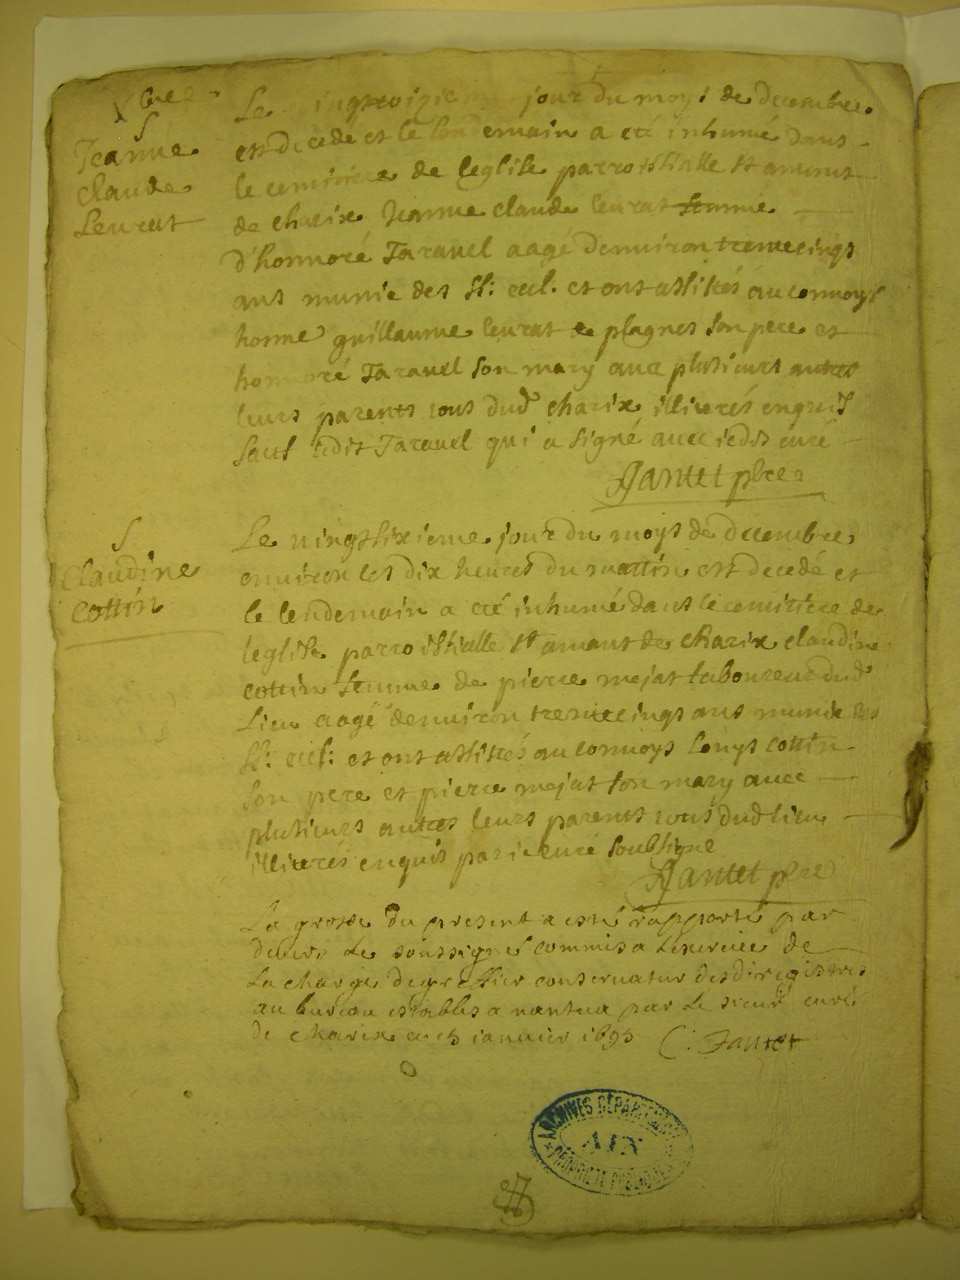 Xbre
S
Jeanne
Claude
Leurat
Le vingtroizie jour du moys de decembre
est decede et le lendemain a eté inhumé dans
le cemitiere de leglise parroisshialle st amant
de charix Jeanne claude leurat femme
d'honnoré Taravel aagé denviron trente cinqs
ans munie des SS: eccl. et ont assistés au convoys
home guillaume leurat plagnes son pere et
honnoré Taravel son mary avec plusieurs autres
leurs parents tous dud charix illiterés enquis
sauf ledit Taravel qui a signé avec je ds curé
Jantet pbre
S
Claudine
cottin
Le vingtsixieme jour du moys de decembre
environ les dix heures du mattin est decedé et
le lendemain a eté inhumé dans le cemitiere de
leglise parroisshialle st amant de charix claudine
cottin femme de pierre mejat laboureur dud
Lieu aagé denviron trente cinqs ans munie des
SS: eccl: et ont assistés au convoys Louys cottin
son pere et pierre mejat son mary avec
plusieurs autres leurs parents tous dud lieu
illiterés enquis par je curé soubsigné
Jantet pbre
La grosse du present a esté rapporté par
devers Le soussigné commis a Lexercice de
La charge de greffier conservatur des registres
au bureau establis a nantua par Le sieur curé
de charix ce janvier 1693 C: Jantet
ARCHIVES DÉPARTEMENTALES
AIN
PROPRIÉTÉ PUBLIQUE